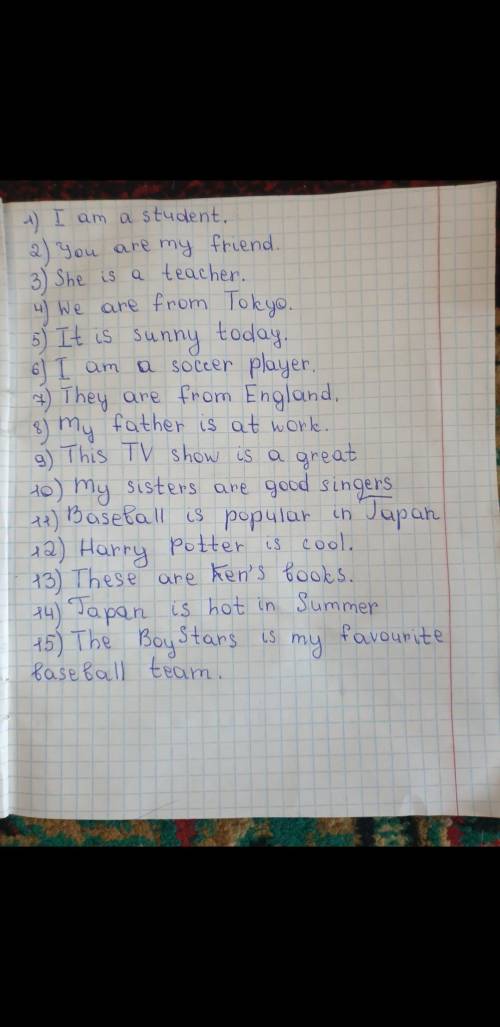 1) I am a student.
2) You are my friend.
3) She is a teacher.
4) We are from Tokyo.
5) It is sunny today.
6) I am a soccer player.
7) They are from England.
8) My father is at work.
9) This TV show is a great
10) My sisters are good singers
11) Baseball is popular in Japan
12) Harry Potter is cool.
13) These are Ken's books.
14) Japan is hot in Summer
15) The BoyStars is my favourite
baseball team.